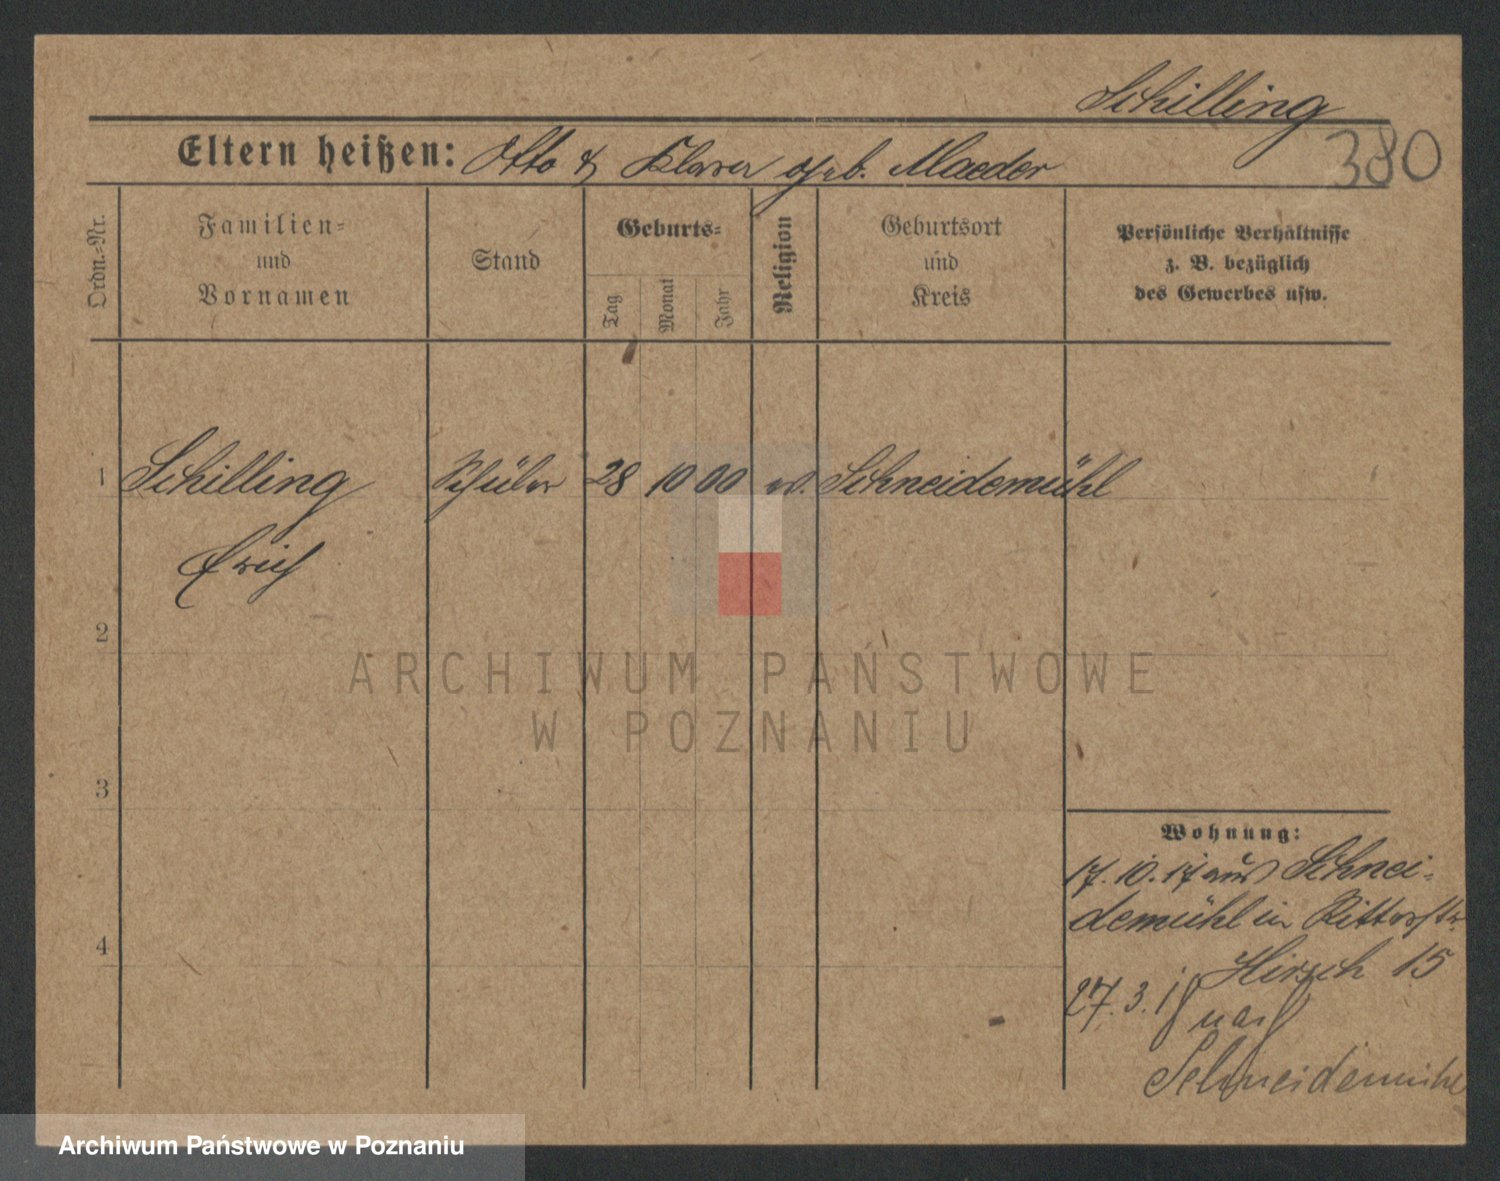 Schilling
380
Eltern heißen: Otto & Klara geb. Maeder
Ordn.=Nr.
Familien=
und
Vornamen
Stand
Geburts=
Tag
Monat
Jahr
Religion
Geburtsort
und
Kreis
Persönliche Verhältnisse
z. B. bezüglich
des Gewerbes usw.
1 Schilling Schüler 28 10 00 ev. Schneidemühl
Erich
2
3
4
Wohnung:
17.10.17 aus Schnei=
demühl in Ritterstr.
Hirsch 15
27.3.18 nach
Schneidemühl
ARCHIWUM PAŃSTWOWE
W POZNANIU
Archiwum Państwowe w Poznaniu